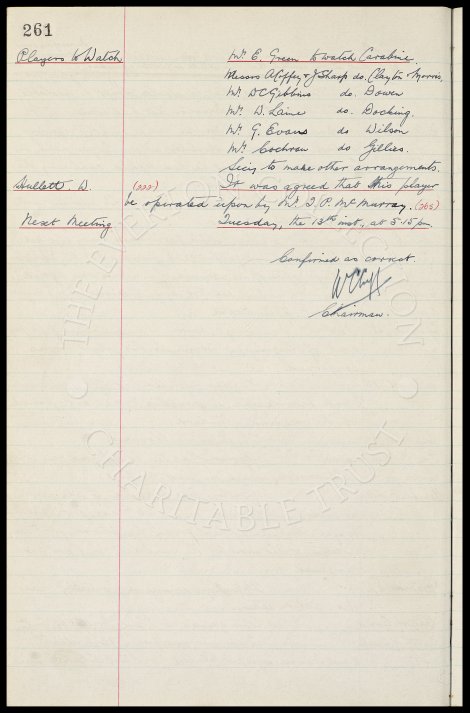 261
Players to Watch
Mr. E. Green to watch Carabine.
Messrs A. Coffey & J. Sharp do. Clayton & Morris.
Mr. D.C. Gibbins do. Dower
Mr. W. Laine do. Docking.
Mr. G. Evans do Wilson
Mr. Cochran do Gillies.
Secy to make other arrangements.
Hullett W. (222) It was agreed that this player
be operated upon by Mr. T. P. McMurray. (265)
Next Meeting Tuesday, the 13th inst, at 5-15 pm.
Confirmed as correct.
W C Cuff
Chairman.
THE EVERTON COLLECTION
CHARITABLE TRUST